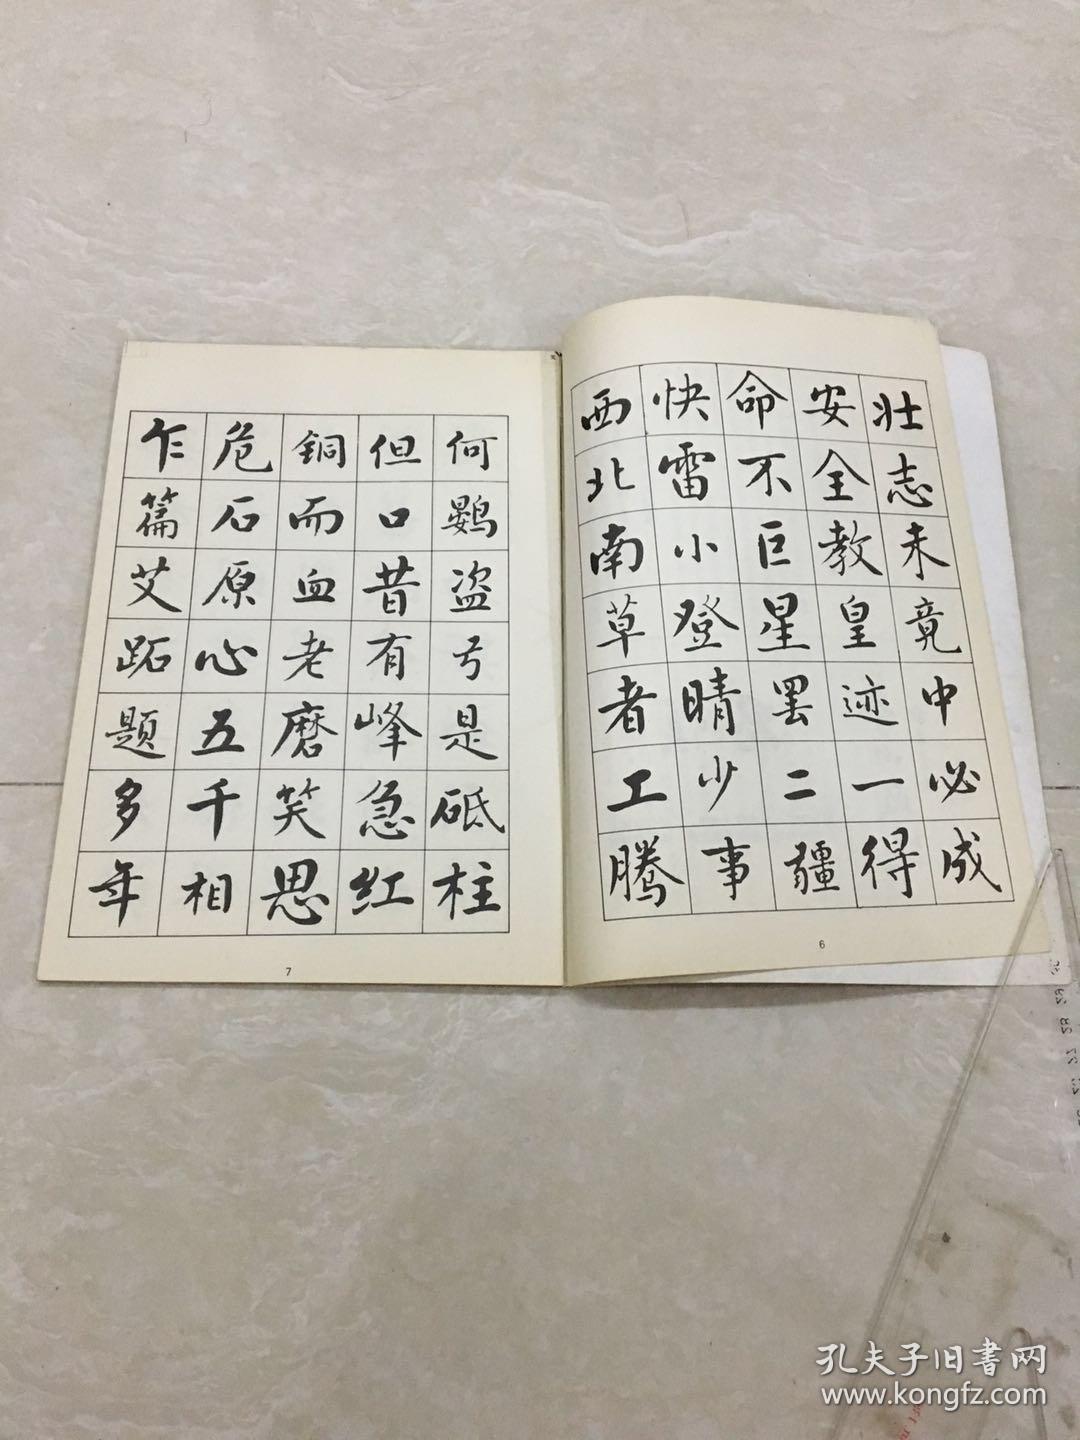 壮志未竟中必成
安全教皇迹一得
命不巨星罢二疆
快雷小登晴少事
西北南草者工腾
6
何盗是砥柱
但口昔有峰急红
铜而血老磨笑思
危石原心五千相
乍篇艾跖题多年
7
孔夫子旧書网
www.kongfz.com